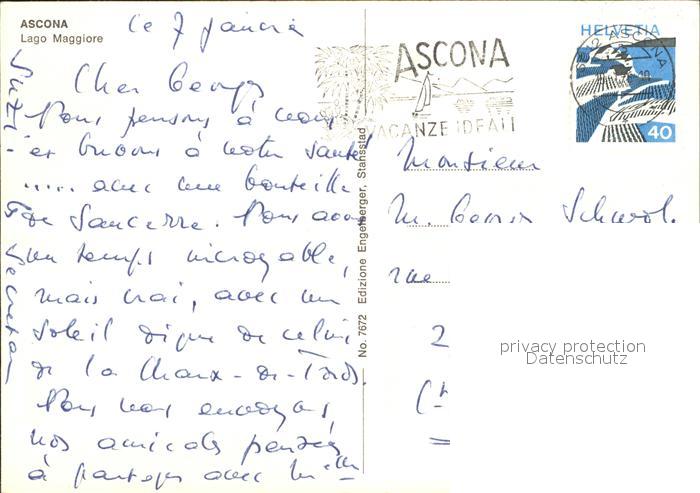 ASCONA
Lago Maggiore
le 7 janvier
Cher Georges
Nous pensons à vous
et buvons à votre santé
..... avec une bouteille
de Sancerre. Nous avons
un temps incroyable,
mais vrai, avec un
soleil digne de celui
de la Chaux-de-Fonds.
Nous vous envoyons
nos amicales pensées
à partager avec
No. 7672 Edizione Engelberger, Stansstad
ASCONA
VACANZE IDEALI
HELVETIA
ASCONA
40
Monsieur
M. Georges
rue
2
privacy protection
Datenschutz